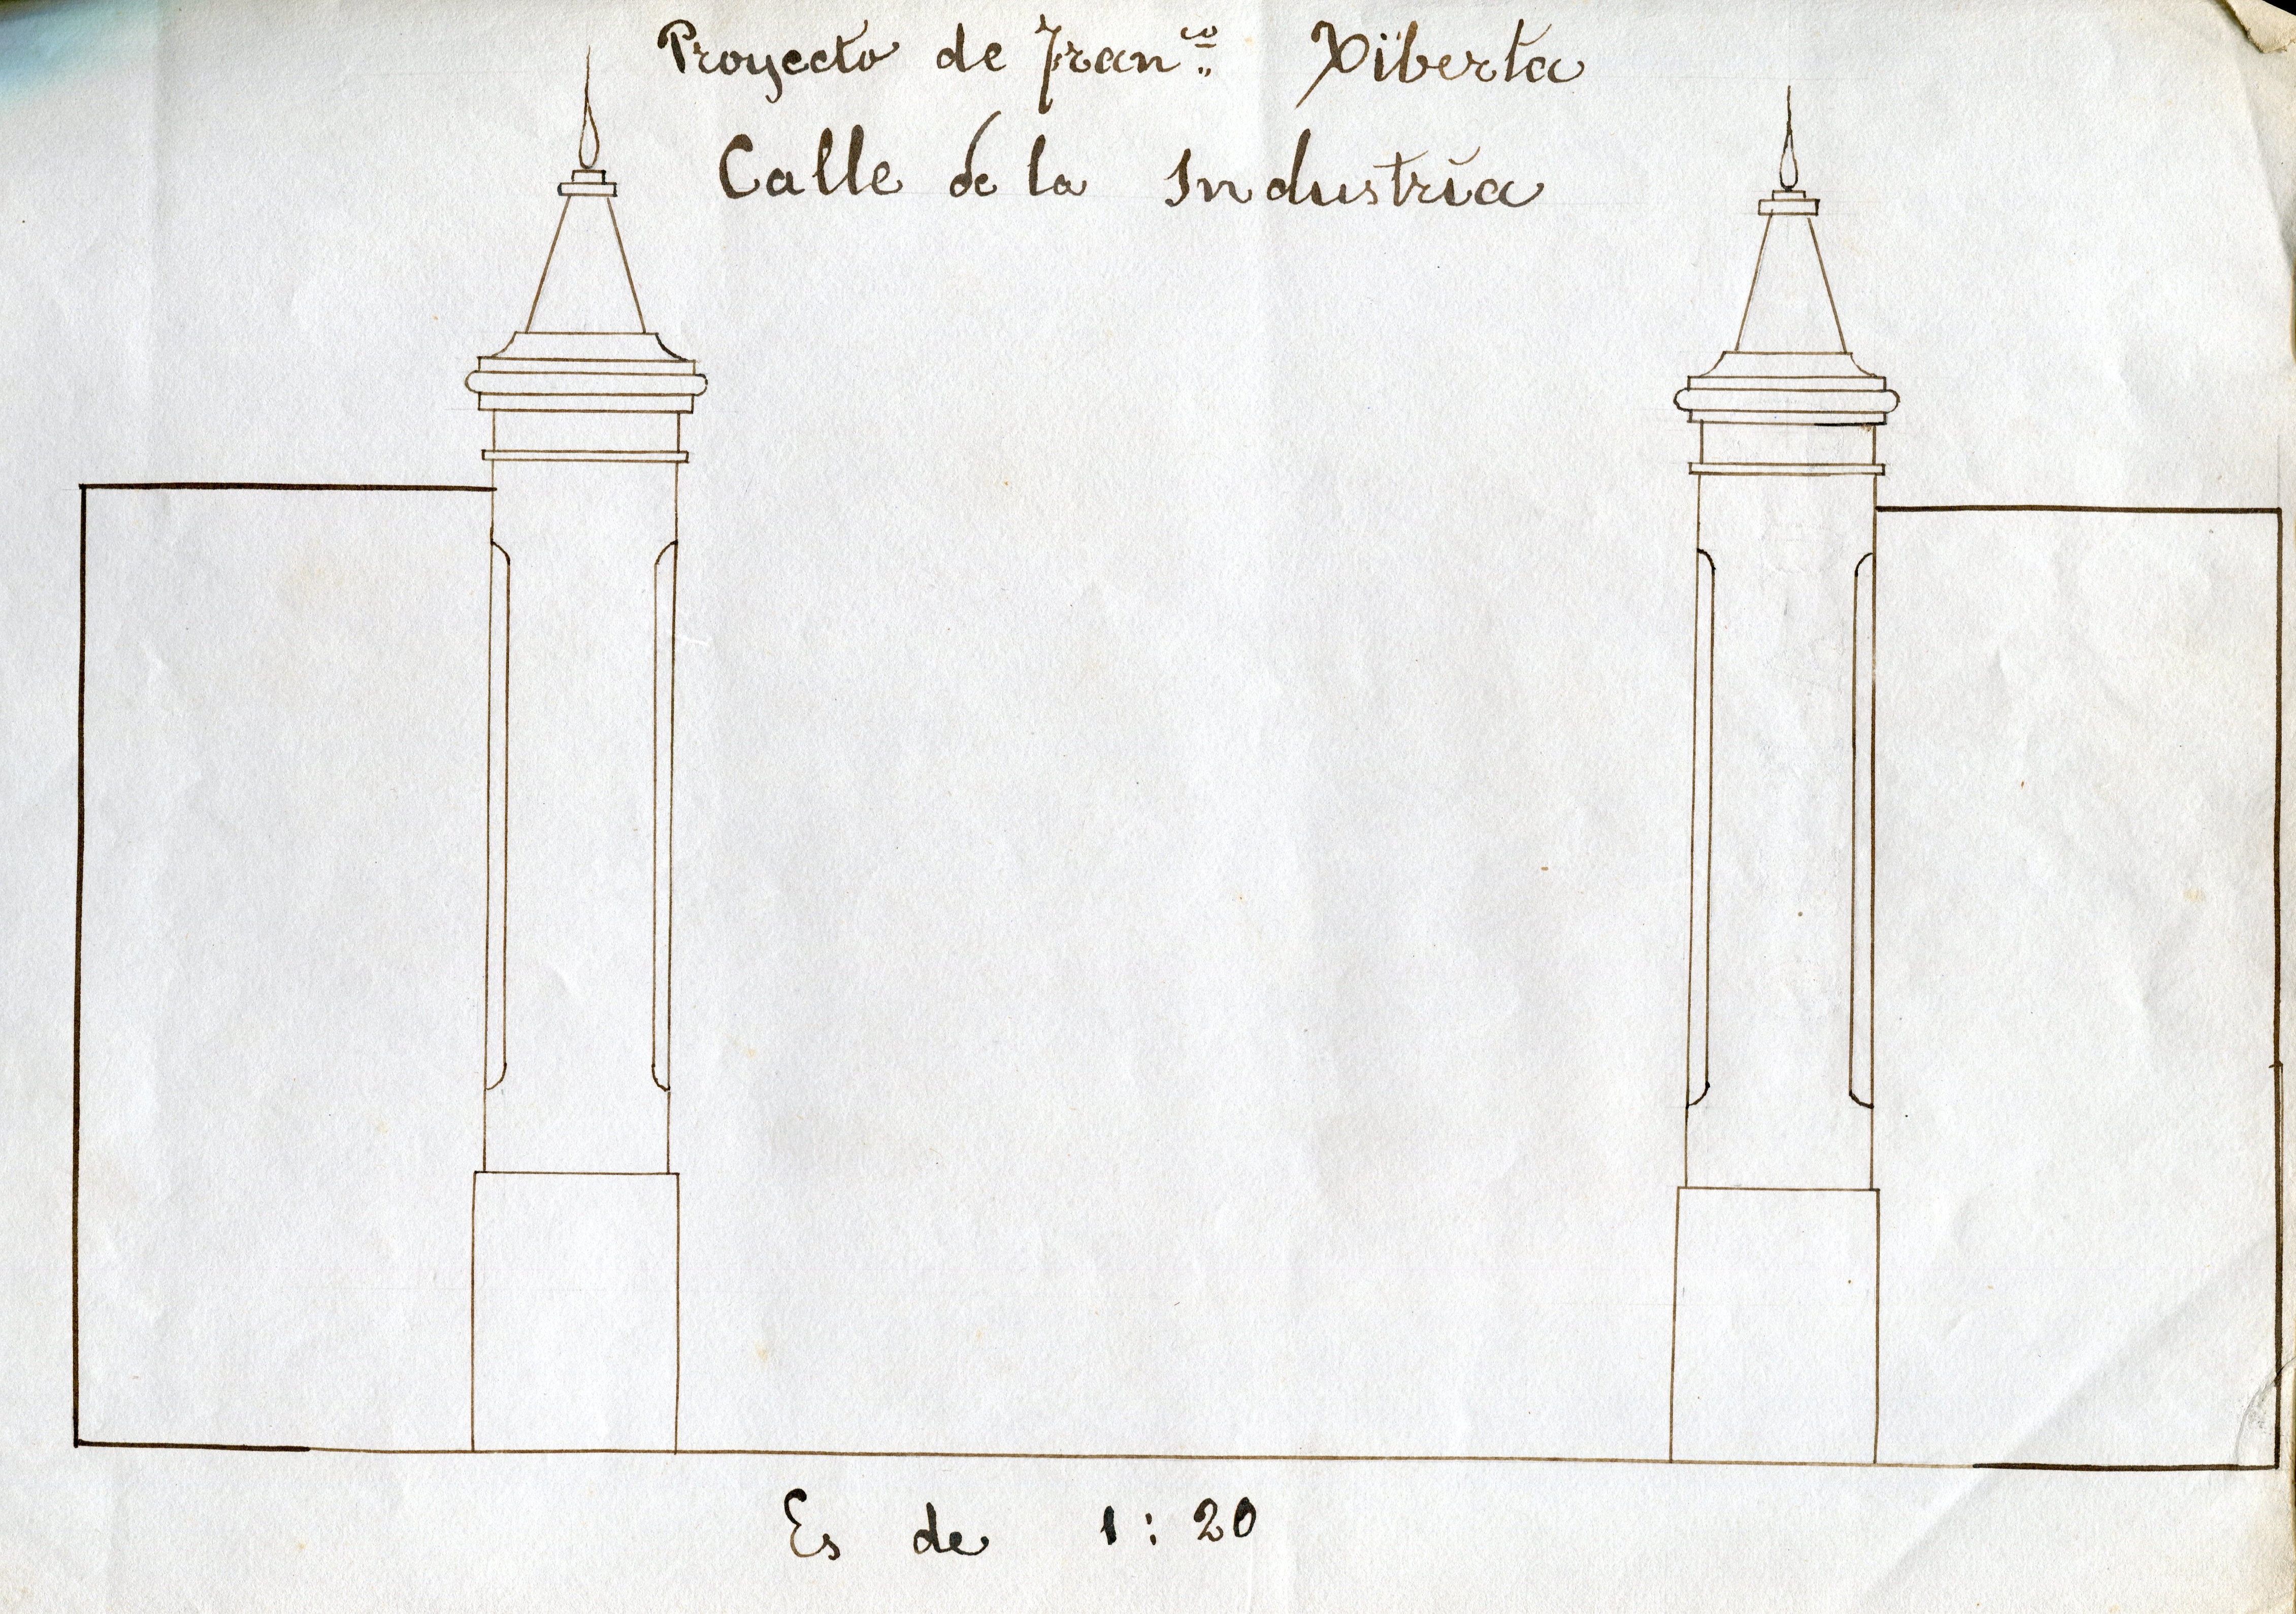 Proyecto de Fran.co Xiberta
Calle de la Industria
Es de 1:20